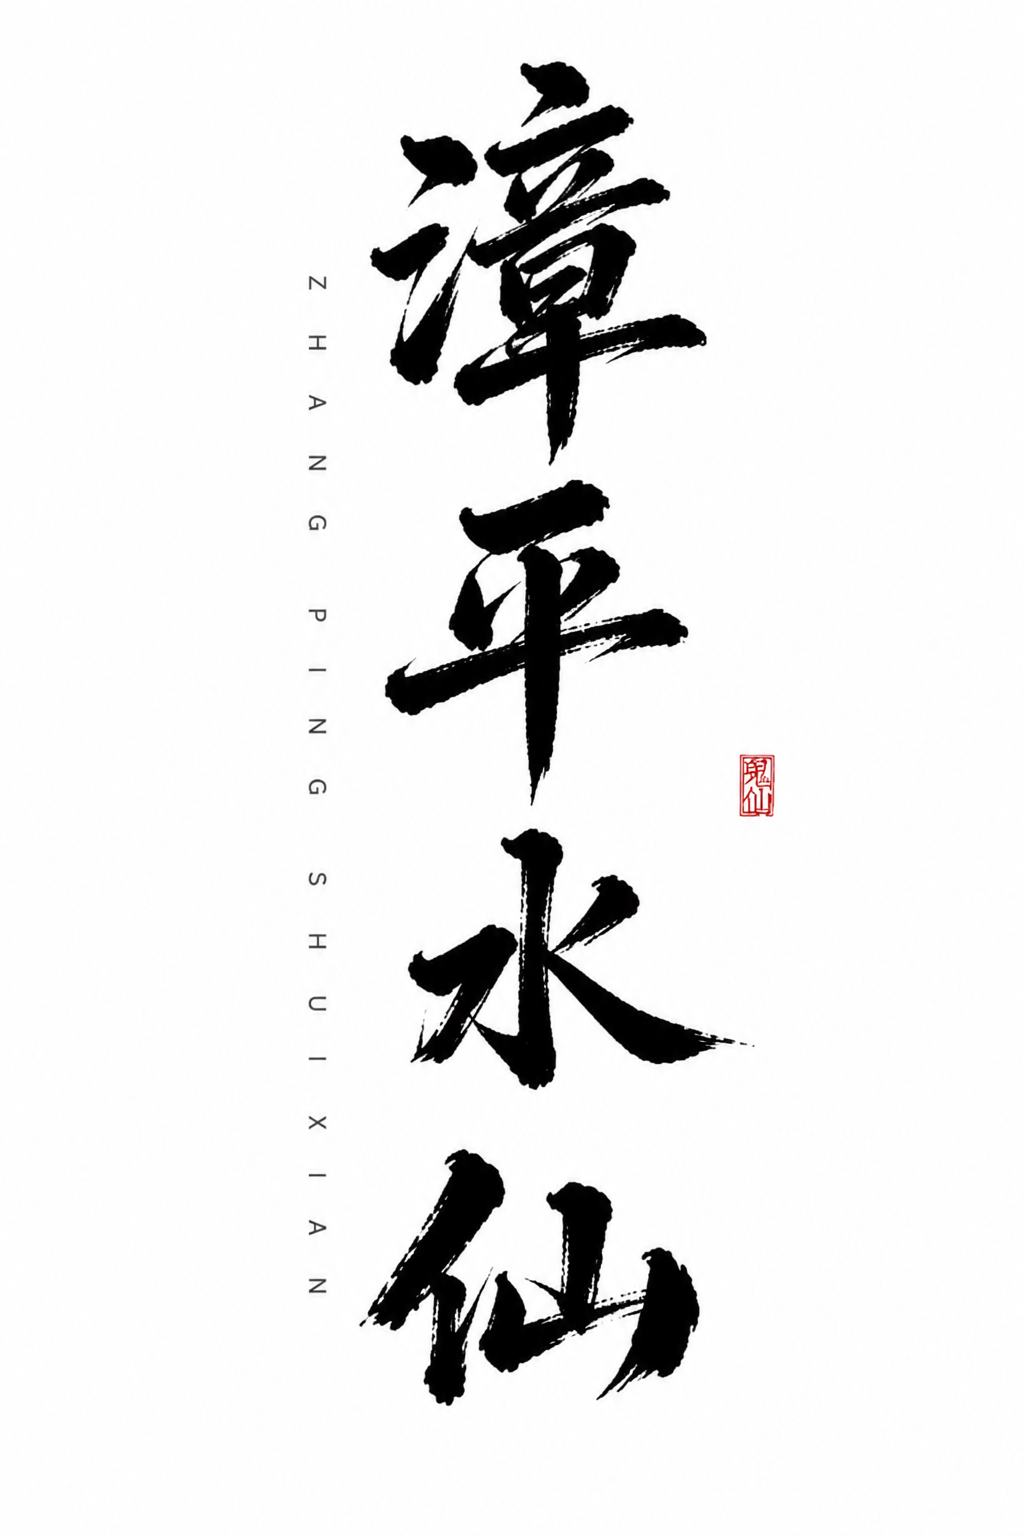 漳平水仙
ZHANG PING SHUI XIAN